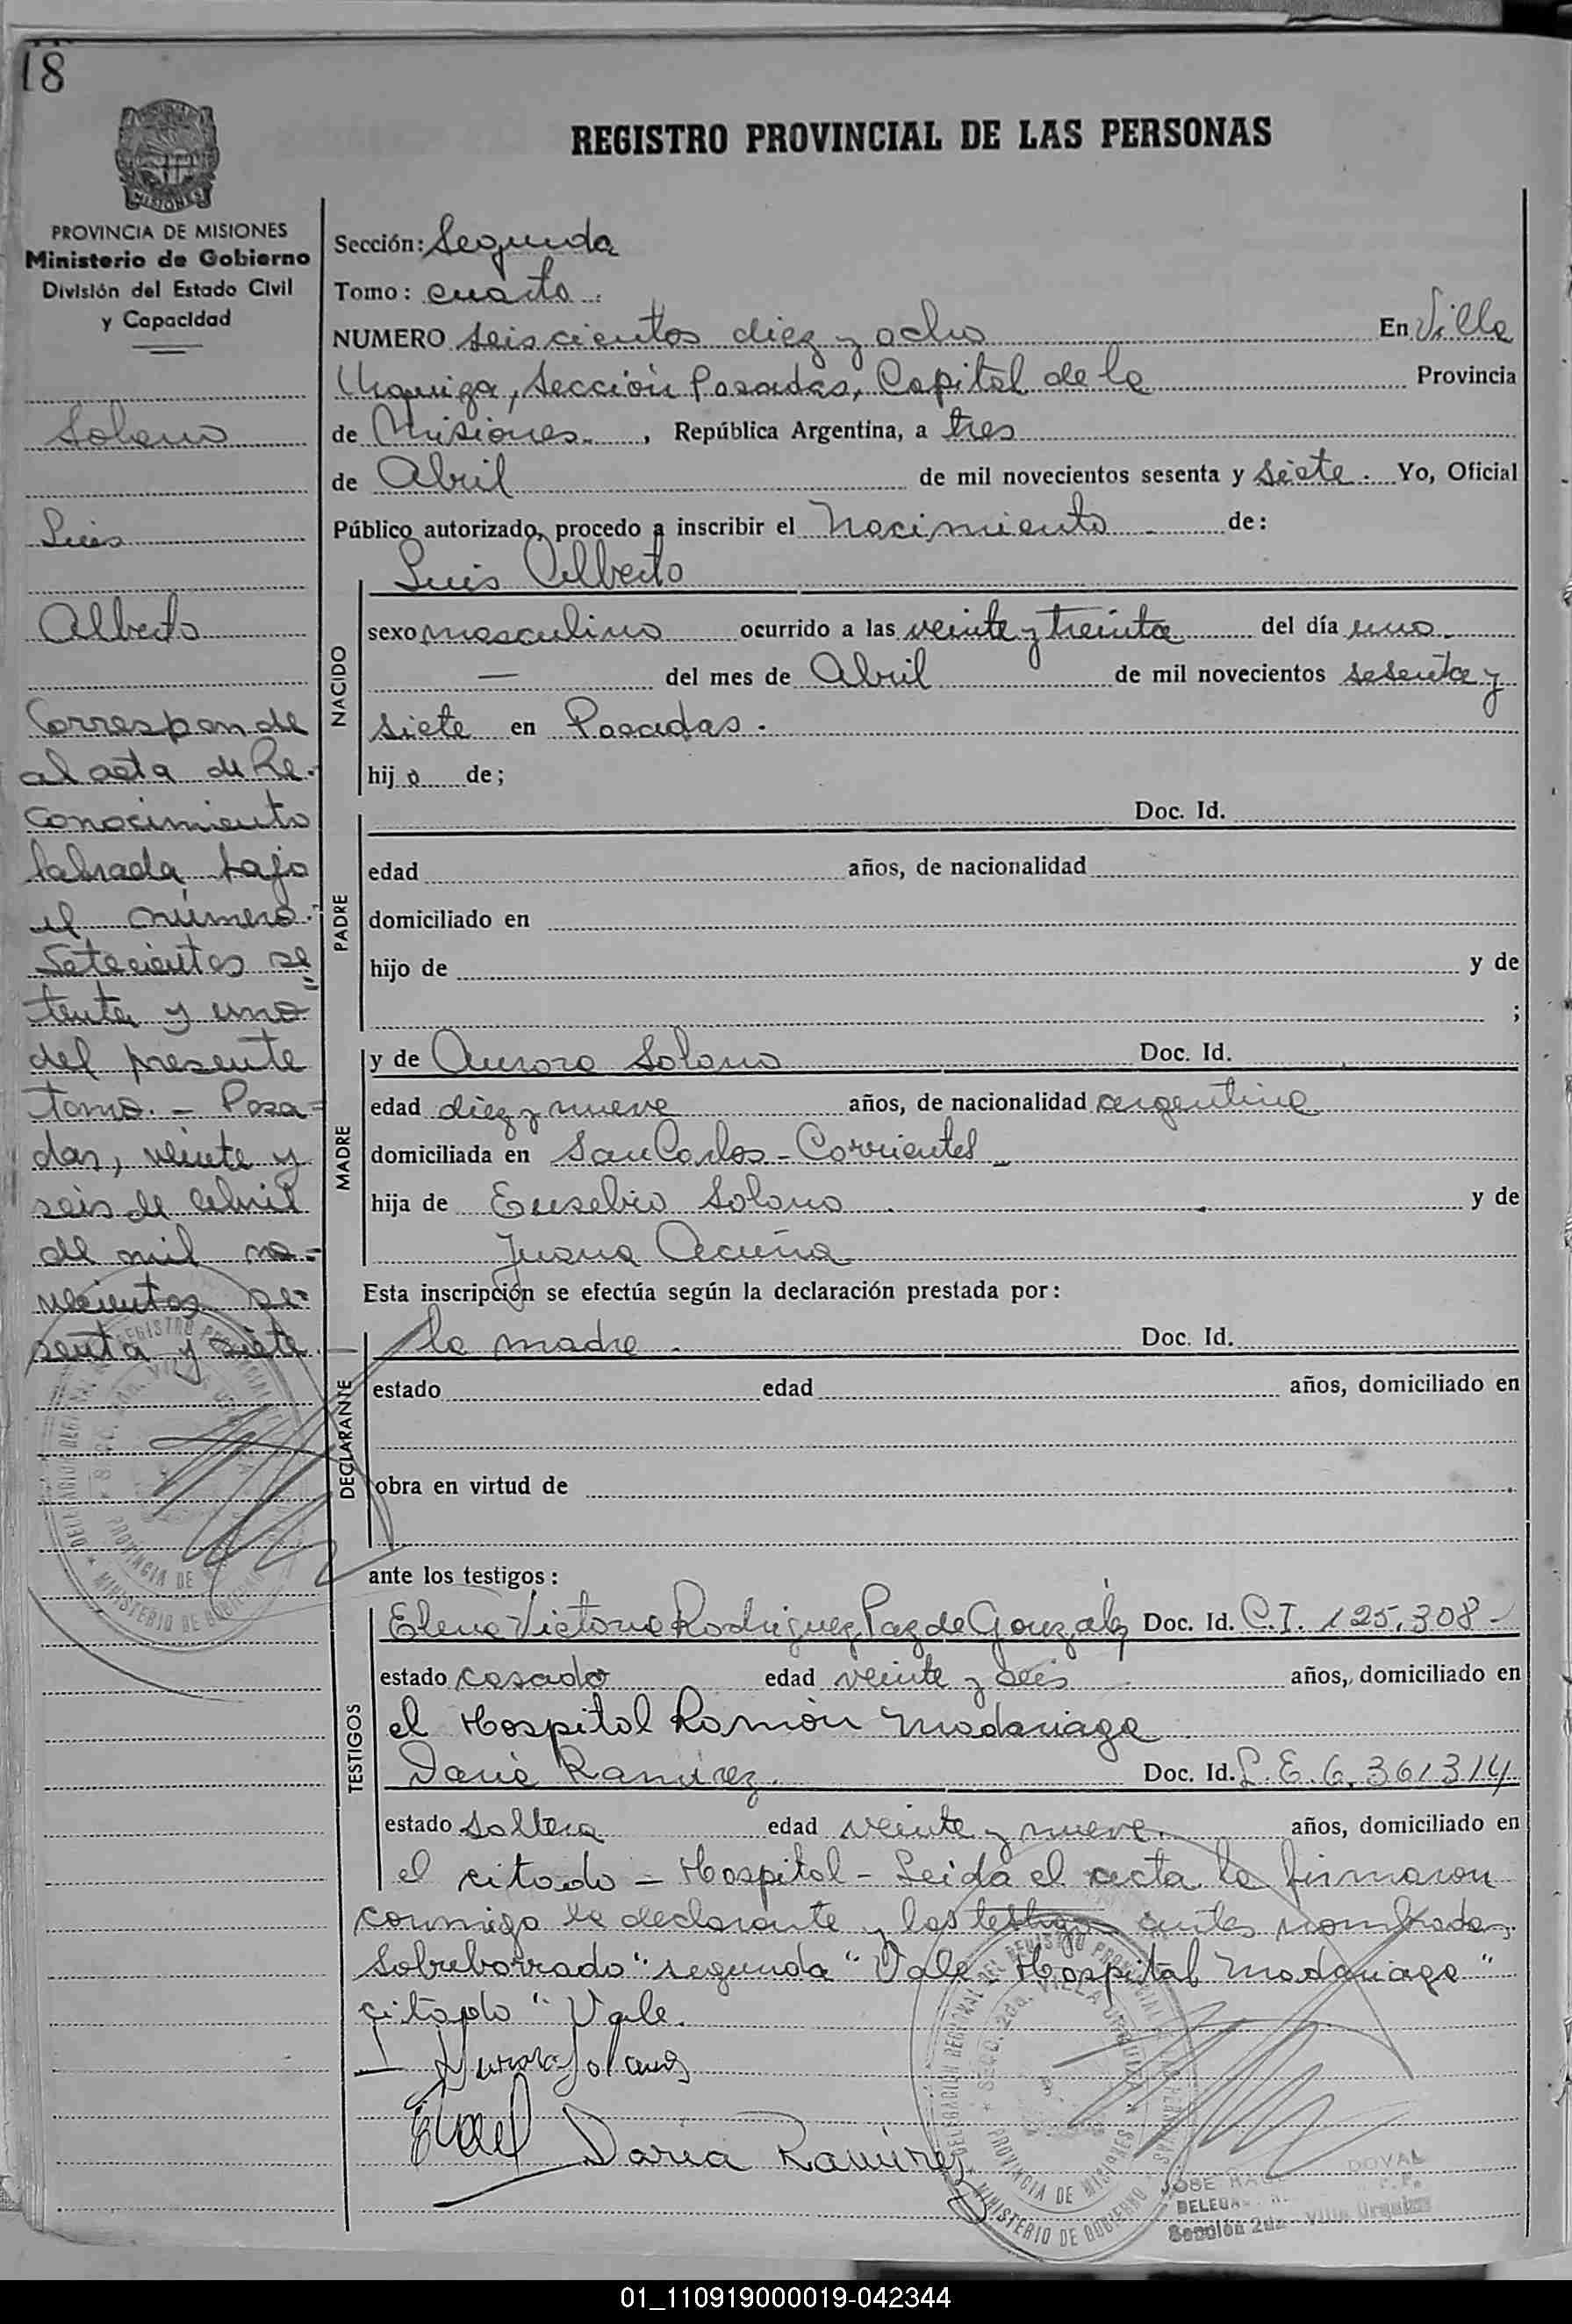 18
MISIONES
PROVINCIA DE MISIONES
Ministerio de Gobierno
División del Estado Civil
y Capacidad
Solano
Luis
Alberto
Corresponde
al acta de Re-
conocimiento
labrada bajo
el número
Setecientos se=
tenta y uno
del presente
tomo. - Posa-
das, veinte y
seis de abril
de mil no-
vecientos se-
senta y siete.
REGISTRO PROVINCIAL DE LAS PERSONAS
Sección: Segunda
Tomo: cuarto
NUMERO seiscientos diez y ocho En Villa
Urquiza, Sección Posadas, Capital de la Provincia
de Misiones, República Argentina, a tres
de Abril de mil novecientos sesenta y siete. Yo, Oficial
Público autorizado, procedo a inscribir el Nacimiento de:
Luis Alberto
NACIDO
sexo masculino ocurrido a las veinte y treinta del día uno
— del mes de Abril de mil novecientos sesenta y
siete en Posadas.
hijo de;
PADRE
Doc. Id.
edad años, de nacionalidad
domiciliado en
hijo de y de
;
MADRE
y de Aurora Solano Doc. Id.
edad diez y nueve años, de nacionalidad argentina
domiciliada en San Carlos - Corrientes
hija de Eusebio Solano y de
Juana Acuña
Esta inscripción se efectúa según la declaración prestada por:
DECLARANTE
la madre. Doc. Id.
estado edad años, domiciliado en
obra en virtud de
ante los testigos:
TESTIGOS
Elena Victoria Rodriguez Paz de Gonzalez Doc. Id. C.I. 125.308-
estado casado edad veinte y seis años, domiciliado en
el Hospital Ramón Madariaga
Daria Ramirez Doc. Id. L.E. 6.361314
estado soltera edad veinte y nueve. años, domiciliado en
el citado - Hospital - Leída el acta la firmaron
conmigo la declarante y los testigos antes nombrados.
Sobreborrado "segunda" Vale - Hospital Madariaga"
citado" Vale.
Aurora Solano
Daria Ramirez
DELEGACION REGIONAL DEL REGISTRO PROVINCIAL
SECC. 2da. VILLA URQUIZA
PROVINCIA DE MISIONES
MINISTERIO DE GOBIERNO
JOSE RAUL DOVAL
Sección 2da - Villa Urquiza
01_110919000019-042344